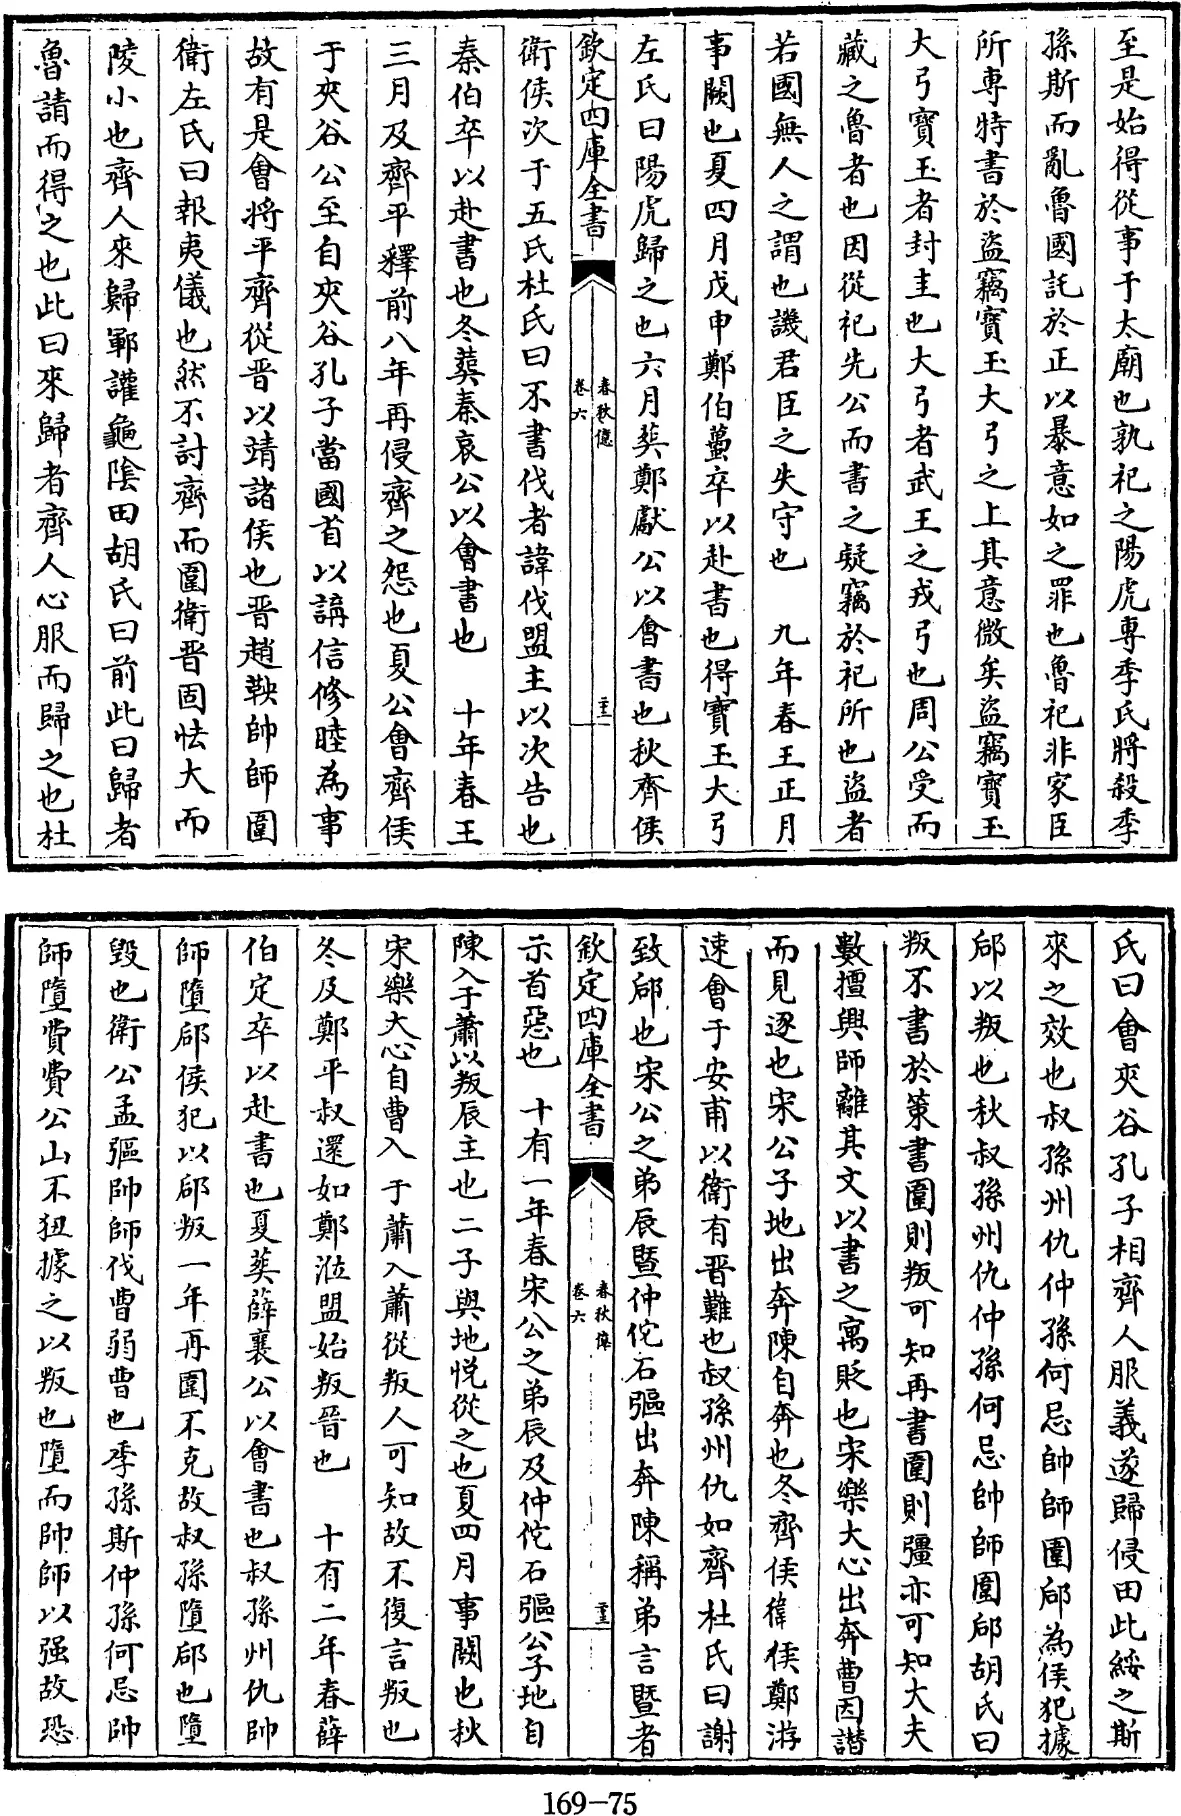 至是始得從事于太廟也孰祀之陽虎專季氏將殺季
孫斯而亂魯國託於正以暴意如之罪也魯祀非家臣
所專特書於盜竊寶玉大弓之上其意微矣盜竊寶玉
大弓寶玉者封圭也大弓者武王之戎弓也周公受而
藏之魯者也因從祀先公而書之疑竊於祀所也盜者
若國無人之謂也譏君臣之失守也　九年春王正月
事闕也夏四月戊申鄭伯蠆卒以赴書也得寶玉大弓
左氏曰陽虎歸之也六月葬鄭獻公以會書也秋齊侯
欽定四庫全書
春秋億
卷六
衛侯次于五氏杜氏曰不書伐者諱伐盟主以次告也
秦伯卒以赴書也冬葬秦哀公以會書也　十年春王
三月及齊平釋前八年再侵齊之怨也夏公會齊侯
于夾谷公至自夾谷孔子當國首以講信修睦為事
故有是會將平齊從晉以靖諸侯也晉趙鞅帥師圍
衛左氏曰報夷儀也然不討齊而圍衛晉固怯大而
陵小也齊人來歸鄆讙龜陰田胡氏曰前此曰歸者
魯請而得之也此曰來歸者齊人心服而歸之也杜
氏曰會夾谷孔子相齊人服義遂歸侵田此綏之斯
來之效也叔孫州仇仲孫何忌帥師圍郈為侯犯據
郈以叛也秋叔孫州仇仲孫何忌帥師圍郈胡氏曰
叛不書於策書圍則叛可知再書圍則彊亦可知大夫
數擅興師離其文以書之寓貶也宋樂大心出奔曹因譖
而見逐也宋公子地出奔陳自奔也冬齊侯衛侯鄭游
速會于安甫以衛有晉難也叔孫州仇如齊杜氏曰謝
致郈也宋公之弟辰暨仲佗石彄出奔陳稱弟言暨者
欽定四庫全書
春秋億
卷六
示首惡也　十有一年春宋公之弟辰及仲佗石彄公子地自
陳入于蕭以叛辰主也二子與地悅從之也夏四月事闕也秋
宋樂大心自曹入于蕭入蕭從叛人可知故不復言叛也
冬及鄭平叔還如鄭涖盟始叛晉也　十有二年春薛
伯定卒以赴書也夏葬薛襄公以會書也叔孫州仇帥
師墮郈侯犯以郈叛一年再圍不克故叔孫墮郈也墮
毀也衛公孟彄帥師伐曹弱曹也季孫斯仲孫何忌帥
師墮費費公山不狃據之以叛也墮而帥師以强故恐
169-75